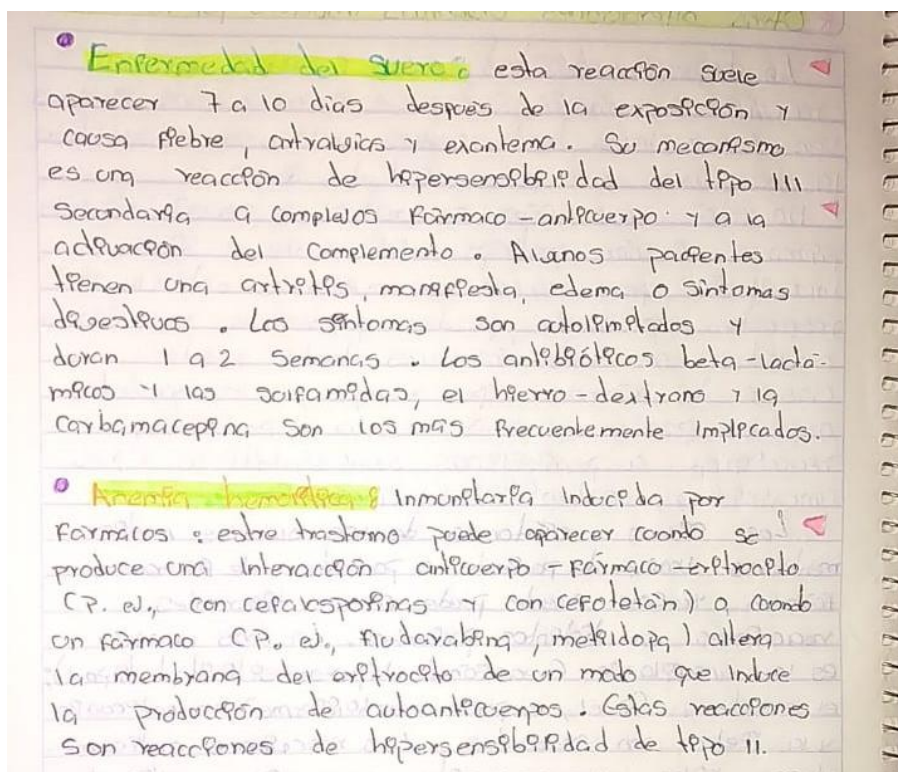 Enfermedad del suero: esta reacción suele
aparecer 7 a 10 dias después de la exposición y
causa fiebre, artralgias y exantema. Su mecanismo
es una reacción de hipersensibilidad del tipo III
Secundaria a complejos Fármaco-anticuerpo y a la
activación del complemento. Algunos pacientes
tienen una artritis, manifiesta, edema o sintomas
digestivos. Los síntomas son autolimitados y
duran 1 a 2 Semanas. Los antibióticos beta-lactá-
micos y las sulfamidas, el hierro-dextrano y la
Carbamacepina Son los más frecuentemente implicados.
Anemia hemolítica: Inmunitaria Inducida por
Fármacos: estre trastorno puede aparecer cuando se
produce una Interacción anticuerpo-Fármaco-eritrocito
(P. ej., con cefalosporinas y con cefotetán) o cuando
un fármaco (P. ej., fludarabina, metildopa) altera
la membrana del eritrocito de un modo que induce
la producción de autoanticuerpos. Estas reacciones
son reacciones de hipersensibilidad de tipo II.